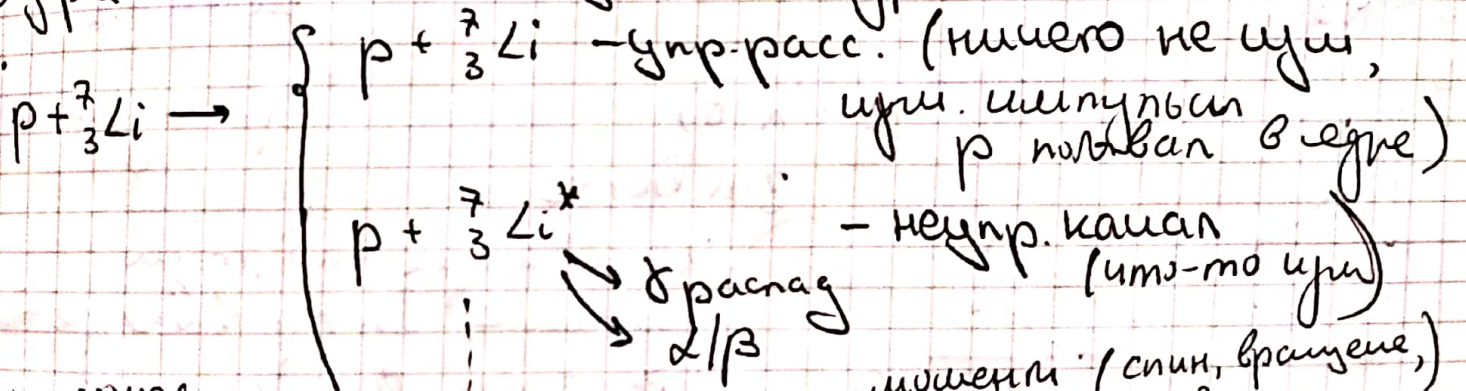 p + ⁷₃Li → { p + ⁷₃Li – упр. расс. (ничего не изм,
изм. импульсы
p побывал в ядре)
p + ⁷₃Li* – неупр. канал
(что-то изм)
↘ γ распад
↘ α/β
моменты (спин, вращение,)